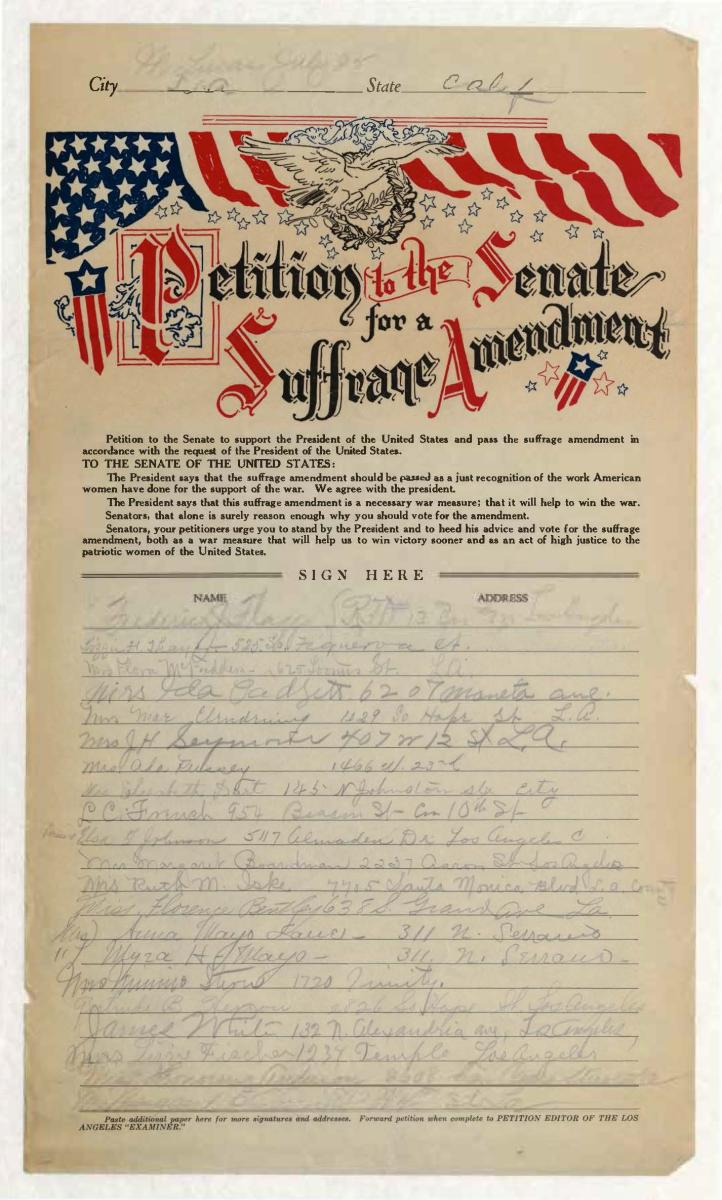 City L.a. State Calif
Petition to the Senate
for a
Suffrage Amendment
Petition to the Senate to support the President of the United States and pass the suffrage amendment in
accordance with the request of the President of the United States.
TO THE SENATE OF THE UNITED STATES:
The President says that the suffrage amendment should be passed as a just recognition of the work American
women have done for the support of the war. We agree with the president.
The President says that this suffrage amendment is a necessary war measure; that it will help to win the war.
Senators, that alone is surely reason enough why you should vote for the amendment.
Senators, your petitioners urge you to stand by the President and to heed his advice and vote for the suffrage
amendment, both as a war measure that will help us to win victory sooner and as an act of high justice to the
patriotic women of the United States.
SIGN HERE
NAME ADDRESS
Frederick Flagg
525 Figueroa St.
Mrs Flora McFadden - 1625 Loomis St. L.A.
Mrs Ida Padgett 6207 Moneta ave.
Mrs Mae 1229 So Hope St L.A.
Mrs J H Seymour 407 W 12 St L.A.
Mrs Ada Fussey 1466 W. 23rd
Elizabeth 145 N Johnston City
L C. French 954 Beacon St - Cor 10th St
Elsa Johnson 5117 Almaden Dr Los Angeles C.
Mrs Margaret Boardman 2237 Aaron St Los Angeles
Mrs Ruth M. Iske 7705 Santa Monica Blvd L.a. County
Miss Florence Bentley 638 S Grand Ave La
Mrs) Anna Mayo 311 N. Serrano
" Myra H. Mayo - 311. N. Serrano -
Mrs Minnie 1720 Trinity.
Gertrude 2826 So Hope St Los Angeles
James White 132 N. Alexandria ave, Los Angeles,
Mrs Lizzie Fischer 1237 Temple Los Angeles
Anderson
Paste additional paper here for more signatures and addresses. Forward petition when complete to PETITION EDITOR OF THE LOS
ANGELES "EXAMINER."